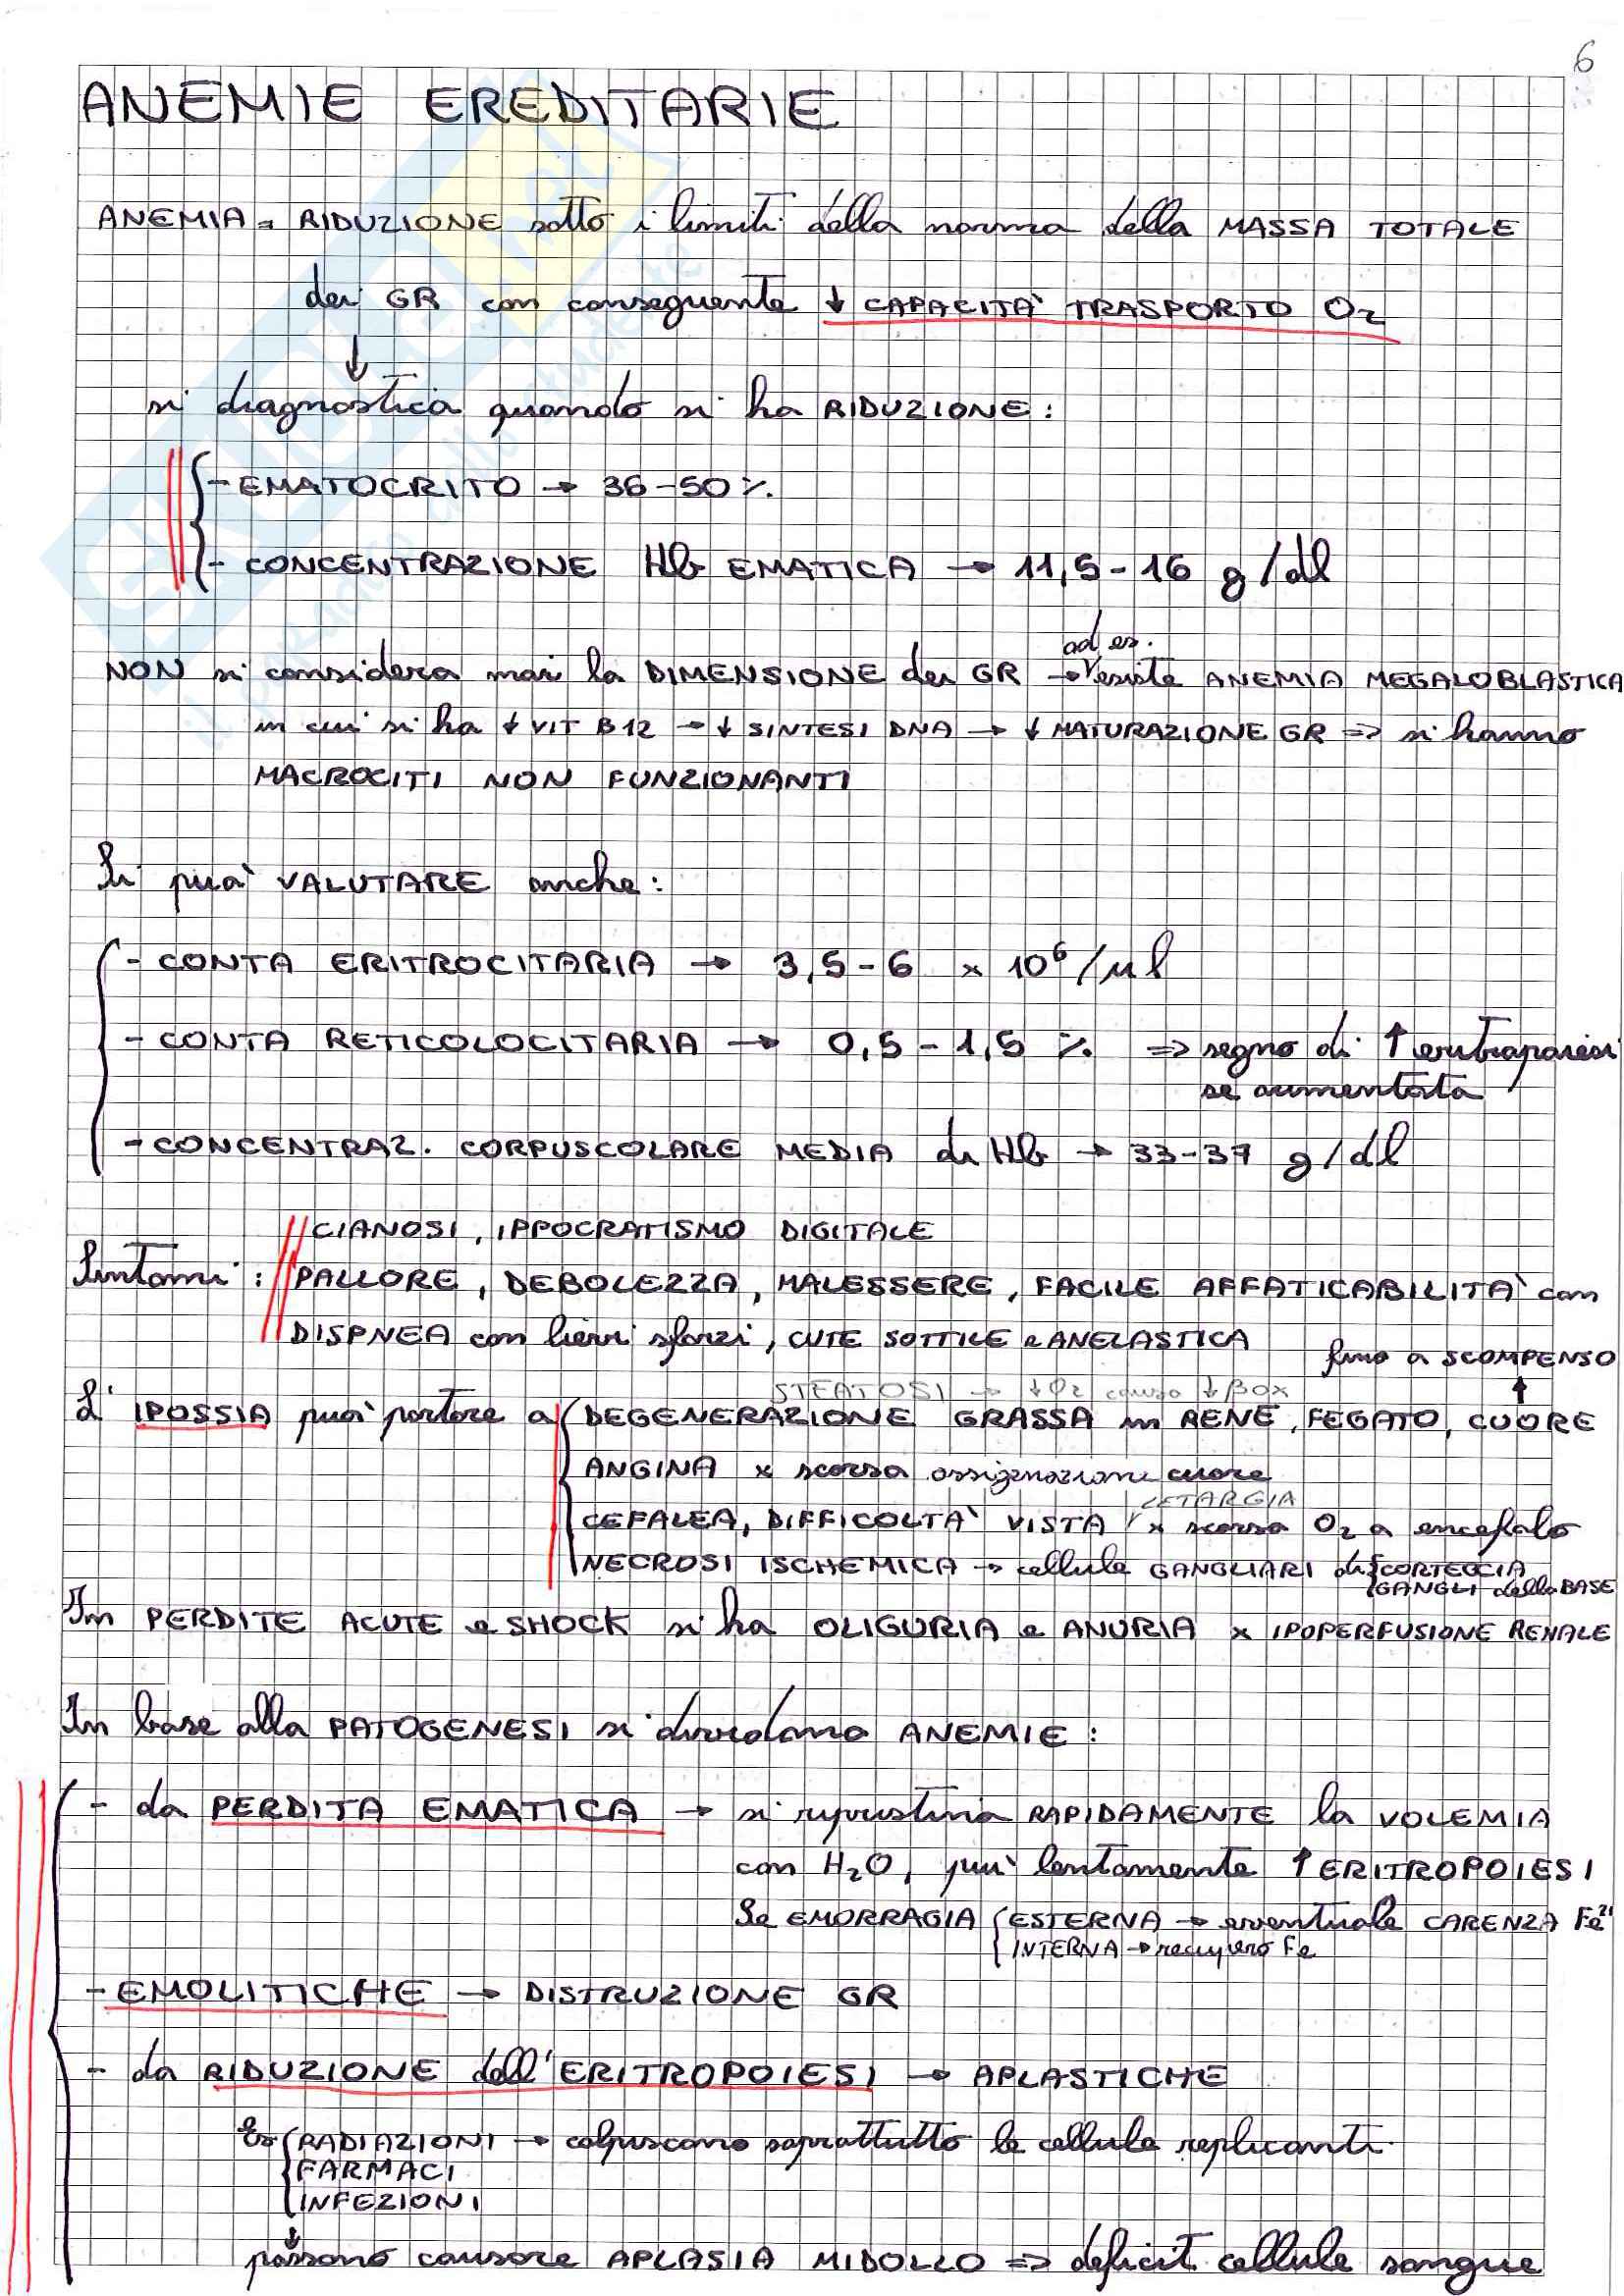 6
ANEMIE EREDITARIE
ANEMIA = RIDUZIONE sotto i limiti della norma della MASSA TOTALE
dei GR con conseguente ↓ CAPACITÀ TRASPORTO O2
↓
si diagnostica quando si ha RIDUZIONE :
- EMATOCRITO → 36-50 %
- CONCENTRAZIONE Hb EMATICA → 11,5-16 g/dl
ad es.
NON si considera mai la DIMENSIONE dei GR → esiste ANEMIA MEGALOBLASTICA
in cui si ha ↓ VIT B12 → ↓ SINTESI DNA → ↓ MATURAZIONE GR => si hanno
MACROCITI NON FUNZIONANTI
Si può VALUTARE anche :
- CONTA ERITROCITARIA → 3,5-6 x 10⁶/µl
- CONTA RETICOLOCITARIA → 0,5-1,5 % => segno di ↑ eritropoiesi
se aumentata
- CONCENTRAZ. CORPUSCOLARE MEDIA di Hb → 33-37 g/dl
CIANOSI, IPPOCRATISMO DIGITALE
Sintomi : PALLORE, DEBOLEZZA, MALESSERE, FACILE AFFATICABILITÀ con
DISPNEA con lievi sforzi, CUTE SOTTILE e ANELASTICA
fino a SCOMPENSO
STEATOSI → ↓O2 causa ↓ βOX ↑
L' IPOSSIA può portare a DEGENERAZIONE GRASSA in RENE, FEGATO, CUORE
ANGINA x scarsa ossigenazione cuore
LETARGIA
CEFALEA, DIFFICOLTÀ VISTA x scarso O2 a encefalo
NECROSI ISCHEMICA → cellule GANGLIARI di CORTECCIA
GANGLI della BASE
In PERDITE ACUTE e SHOCK si ha OLIGURIA e ANURIA x IPOPERFUSIONE RENALE
In base alla PATOGENESI si dividono ANEMIE :
- da PERDITA EMATICA → si ripristina RAPIDAMENTE la VOLEMIA
con H2O, più lentamente ↑ ERITROPOIESI
Se EMORRAGIA ESTERNA → eventuale CARENZA Fe²⁺
INTERNA → recupero Fe
- EMOLITICHE → DISTRUZIONE GR
- da RIDUZIONE dell'ERITROPOIESI → APLASTICHE
Es RADIAZIONI → colpiscono soprattutto le cellule replicanti
FARMACI
INFEZIONI
↓
possono causare APLASIA MIDOLLO => deficit cellule sangue